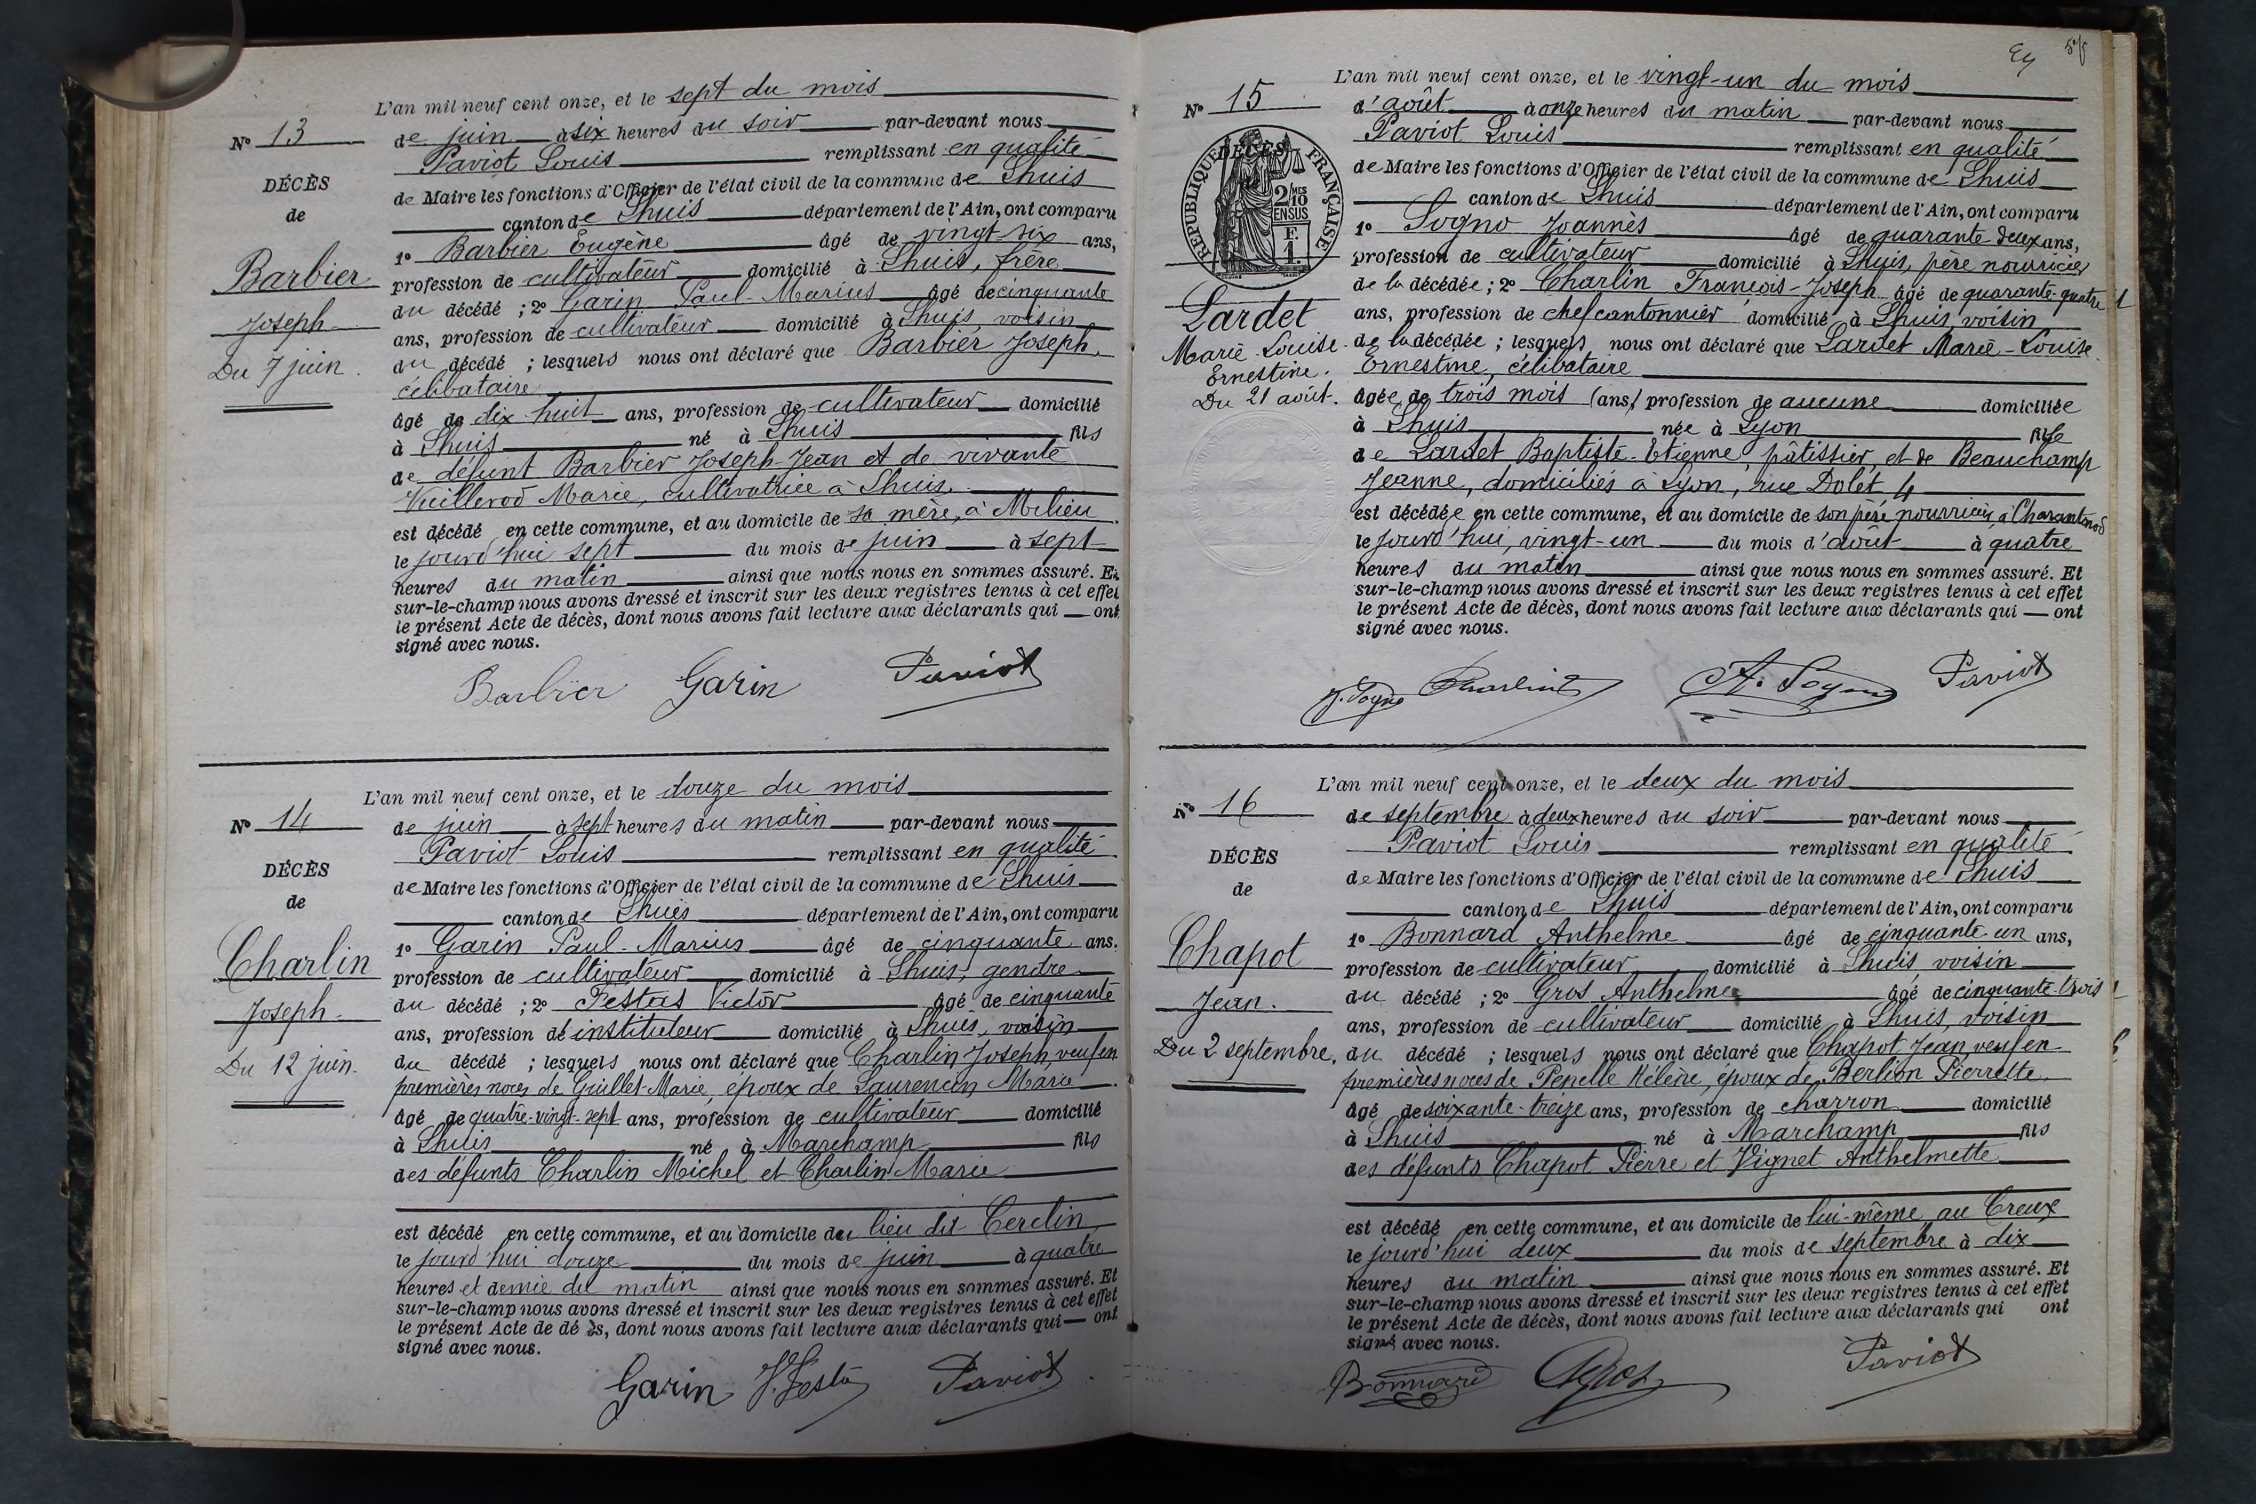 L'an mil neuf cent onze, et le sept du mois
N° 13
de juin à six heures du soir par-devant nous
Paviot Louis remplissant en qualité
DÉCÈS
de Maire les fonctions d'Officier de l'état civil de la commune de Lhuis
de
canton de Lhuis département de l'Ain, ont comparu
1° Barbier Eugène âgé de vingt six ans,
Barbier
profession de cultivateur domicilié à Lhuis, frère
du décédé ; 2° Garin Paul-Marius âgé de cinquante
Joseph
ans, profession de cultivateur domicilié à Lhuis, voisin
Du 7 juin.
du décédé ; lesquels nous ont déclaré que Barbier Joseph,
célibataire
âgé de dix huit ans, profession de cultivateur domicilié
à Lhuis né à Lhuis fils
de défunt Barbier Joseph-Jean et de vivante
Vuillerod Marie, cultivatrice à Lhuis,
est décédé en cette commune, et au domicile de sa mère, à Milieu
le jourd'hui sept du mois de juin à sept
heures du matin ainsi que nous nous en sommes assuré. Et
sur-le-champ nous avons dressé et inscrit sur les deux registres tenus à cet effet
le présent Acte de décès, dont nous avons fait lecture aux déclarants qui — ont
signé avec nous.
Barbier Garin Paviot
L'an mil neuf cent onze, et le douze du mois
N° 14
de juin à sept heures du matin par-devant nous
Paviot Louis remplissant en qualité
DÉCÈS
de Maire les fonctions d'Officier de l'état civil de la commune de Lhuis
de
canton de Lhuis département de l'Ain, ont comparu
1° Garin Paul-Marius âgé de cinquante ans.
Charlin
profession de cultivateur domicilié à Lhuis, gendre
du décédé ; 2° Festas Victor âgé de cinquante
Joseph
ans, profession de instituteur domicilié à Lhuis, voisin
Du 12 juin.
du décédé ; lesquels nous ont déclaré que Charlin Joseph, veuf en
premières noces de Guillet Marie, époux de Laurencin Marie
âgé de quatre-vingt-sept ans, profession de cultivateur domicilié
à Lhuis né à Marchamp fils
des défunts Charlin Michel et Charlin Marie
est décédé en cette commune, et au domicile du lieu dit Cerclin,
le jourd'hui douze du mois de juin à quatre
heures et demie du matin ainsi que nous nous en sommes assuré. Et
sur-le-champ nous avons dressé et inscrit sur les deux registres tenus à cet effet
le présent Acte de dé ès, dont nous avons fait lecture aux déclarants qui — ont
signé avec nous.
Garin Paviot
L'an mil neuf cent onze, et le vingt-un du mois
N° 15
d'août à onze heures du matin par-devant nous
Paviot Louis remplissant en qualité
DÉCÈS
RÉPUBLIQUE FRANÇAISE
2/10 MES
EN SUS
F.
1.
de Maire les fonctions d'Officier de l'état civil de la commune de Lhuis
canton de Lhuis département de l'Ain, ont comparu
1° Sogno Joannès âgé de quarante deux ans,
profession de cultivateur domicilié à Lhuis, père nourricier
de la décédée ; 2° Charlin François-Joseph âgé de quarante-quatre
Lardet
ans, profession de chef cantonnier domicilié à Lhuis, voisin
Marie-Louise
Ernestine.
Du 21 août.
de la décédée ; lesquels nous ont déclaré que Lardet Marie-Louise
Ernestine, célibataire
âgée de trois mois (ans) profession de aucune domiciliée
à Lhuis née à Lyon fille
de Lardet Baptiste-Etienne, pâtissier, et de Beauchamp
Jeanne, domiciliés à Lyon, rue Dolet, 4
est décédée en cette commune, et au domicile de son père nourricier, à Charantonod
le jourd'hui, vingt-un du mois d'août à quatre
heures du matin ainsi que nous nous en sommes assuré. Et
sur-le-champ nous avons dressé et inscrit sur les deux registres tenus à cet effet
le présent Acte de décès, dont nous avons fait lecture aux déclarants qui — ont
signé avec nous.
J. Sogno Charlin Paviot
L'an mil neuf cent onze, et le deux du mois
N° 16
de septembre à deux heures du soir par-devant nous
Paviot Louis remplissant en qualité
DÉCÈS
de Maire les fonctions d'Officier de l'état civil de la commune de Lhuis
de
canton de Lhuis département de l'Ain, ont comparu
1° Bonnard Anthelme âgé de cinquante-un ans,
Chapot
profession de cultivateur domicilié à Lhuis, voisin
du décédé ; 2° Gros Anthelme âgé de cinquante-trois
Jean.
ans, profession de cultivateur domicilié à Lhuis, voisin
Du 2 septembre.
du décédé ; lesquels nous ont déclaré que Chapot Jean, veuf en
premières noces de Pepelle Hélène, époux de Berlion Pierrette
âgé de soixante-treize ans, profession de charron domicilié
à Lhuis né à Marchamp fils
des défunts Chapot Pierre et Vignet Anthelmette
est décédé en cette commune, et au domicile de lui-même au Creux
le jourd'hui deux du mois de septembre à dix
heures du matin ainsi que nous nous en sommes assuré. Et
sur-le-champ nous avons dressé et inscrit sur les deux registres tenus à cet effet
le présent Acte de décès, dont nous avons fait lecture aux déclarants qui ont
signé avec nous.
Bonnard Gros Paviot